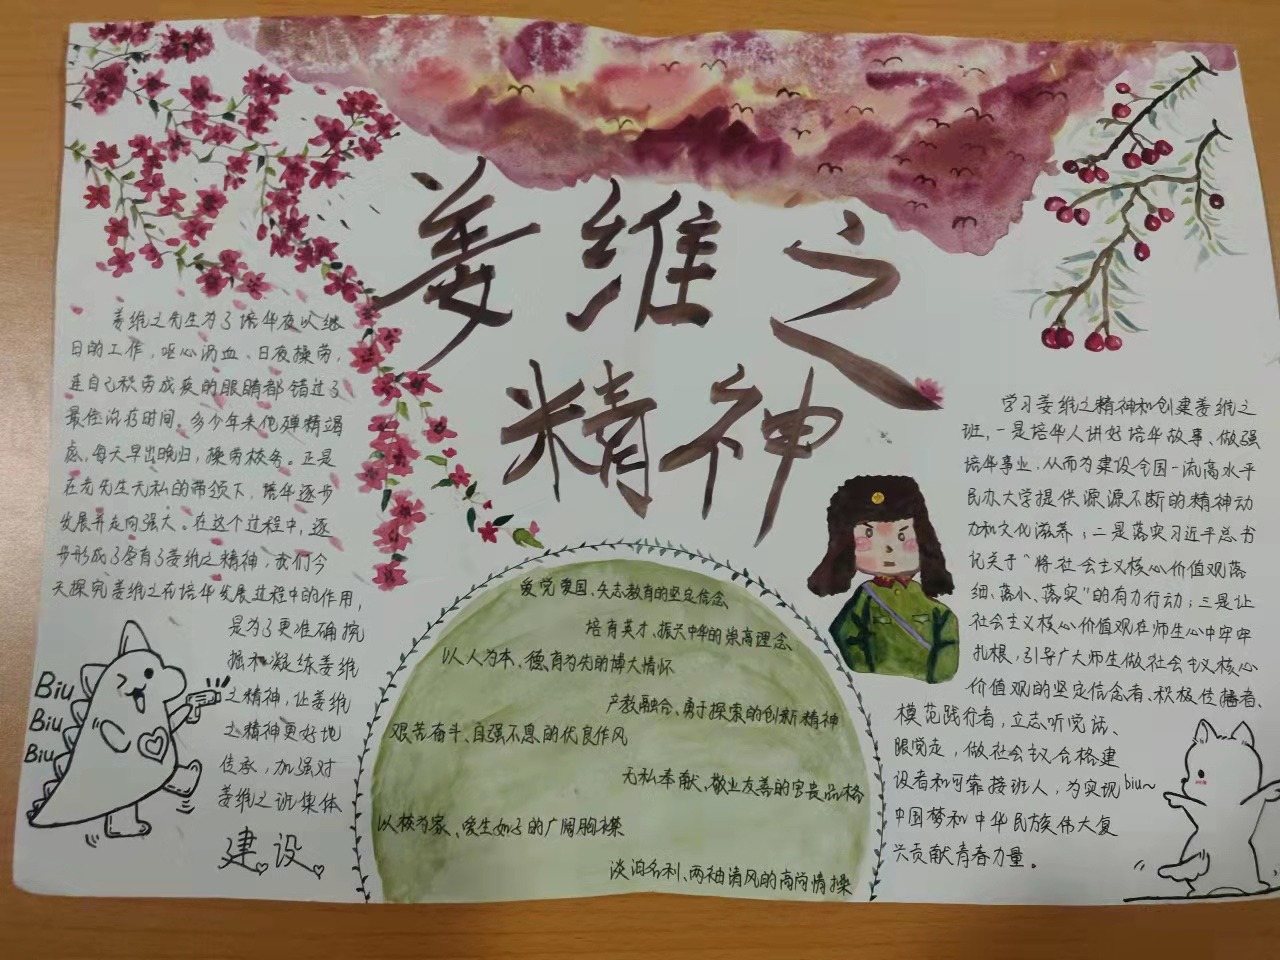 姜维之
精神
姜维之先生为了培华夜以继
日的工作，呕心沥血、日夜操劳，
连自己积劳成疾的眼睛都错过了
最佳治疗时间。多少年来他殚精竭
虑，每天早出晚归，操劳校务。正是
在老先生无私的带领下，培华逐步
发展并走向强大。在这个过程中，逐
步形成了孕育了姜维之精神，我们今
天探究姜维之在培华发展过程中的作用，
是为了更准确挖
掘和凝练姜维
之精神，让姜维
之精神更好地
传承，加强对
姜维之班集体
建设
Biu
Biu
Biu
爱党爱国、矢志教育的坚定信念
培育英才、振兴中华的崇高理念
以人为本、德育为先的博大情怀
产教融合、勇于探索的创新精神
艰苦奋斗、自强不息的优良作风
无私奉献、敬业友善的宝贵品格
以校为家、爱生如子的广阔胸襟
淡泊名利、两袖清风的高尚情操
学习姜维之精神和创建姜维之
班，一是培华人讲好培华故事、做强
培华事业，从而为建设全国一流高水平
民办大学提供源源不断的精神动
力和文化滋养；二是落实习近平总书
记关于“将社会主义核心价值观落
细、落小、落实”的有力行动；三是让
社会主义核心价值观在师生心中牢牢
扎根，引导广大师生做社会主义核心
价值观的坚定信念者、积极传播者、
模范践行者，立志听党话、
跟党走，做社会主义合格建
设者和可靠接班人，为实现
中国梦和中华民族伟大复
兴贡献青春力量。
biu~